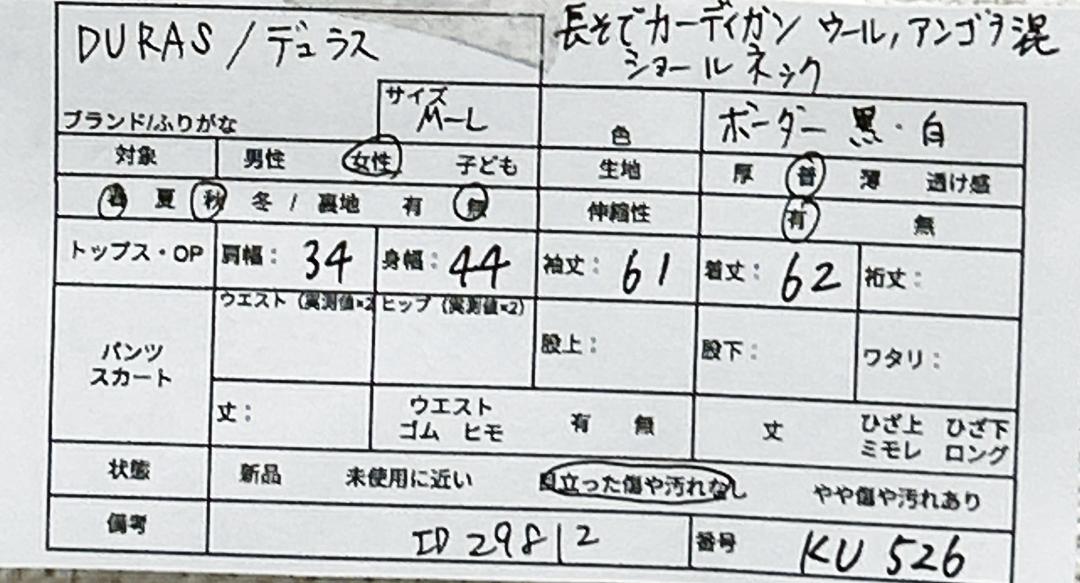 DURAS / デュラス
長そでカーディガン ウール,アンゴラ混
ショールネック
ブランド/ふりがな
サイズ
M-L
色
ボーダー 黒・白
対象 男性 女性 子ども 生地 厚 普 薄 透け感
春 夏 秋 冬 / 裏地 有 無 伸縮性 有 無
トップス・OP 肩幅: 34 身幅: 44 袖丈: 61 着丈: 62 裄丈:
パンツ
スカート
ウエスト (実測値×2 ヒップ (実測値×2) 股上: 股下: ワタリ:
丈: ウエスト
ゴム ヒモ
有 無 丈 ひざ上 ひざ下
ミモレ ロング
状態 新品 未使用に近い 目立った傷や汚れなし やや傷や汚れあり
備考 ID 29812 番号 KU 526